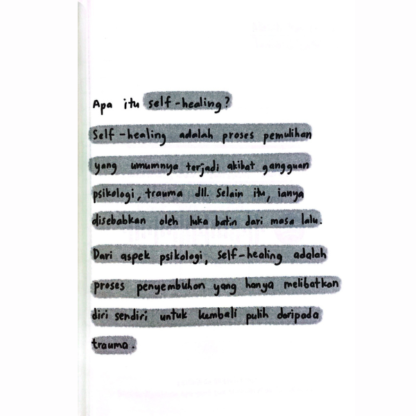 Apa itu self-healing?
Self-healing adalah proses pemulihan
yang umumnya terjadi akibat gangguan
psikologi, trauma dll. Selain itu, ianya
disebabkan oleh luka batin dari masa lalu.
Dari aspek psikologi, self-healing adalah
proses penyembuhan yang hanya melibatkan
diri sendiri untuk kembali pulih daripada
trauma.